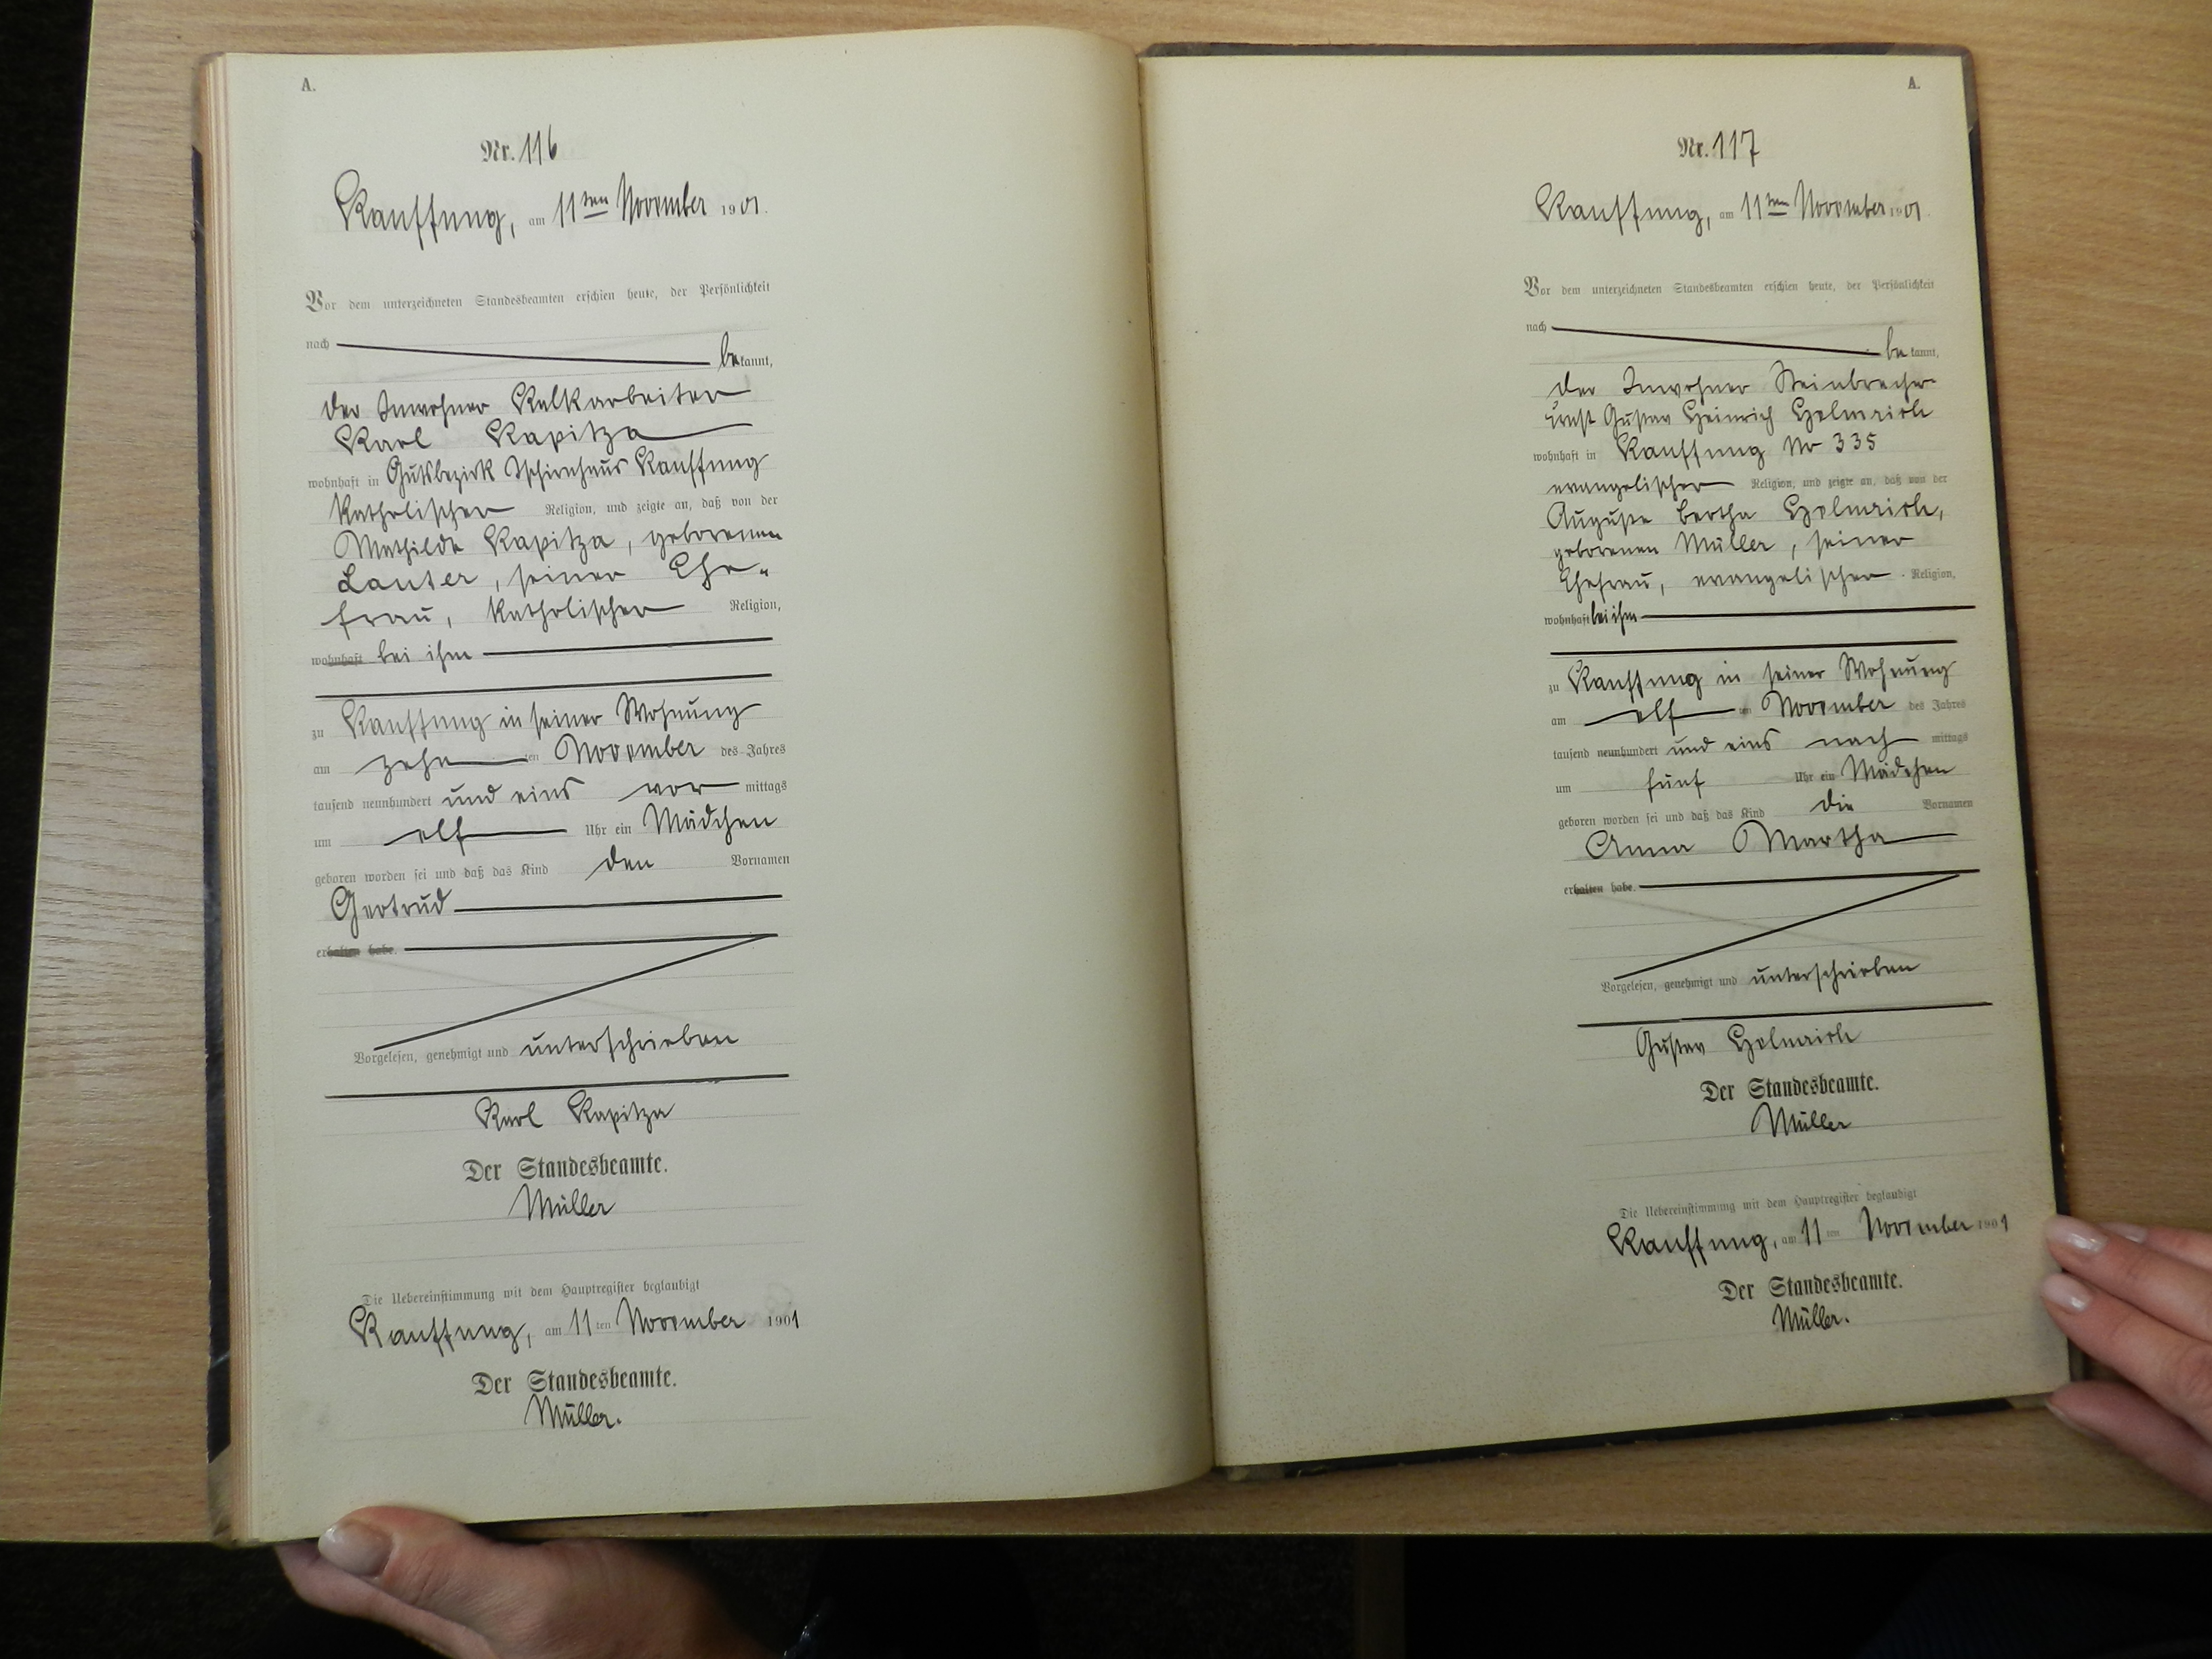 A.
Nr. 116
Kauffung, am 11ten November 1901.
Vor dem unterzeichneten Standesbeamten erschien heute, der Persönlichkeit
nach
bekannt,
der Inwohner Kalkarbeiter
Karl Kapitza
wohnhaft in Gutsbezirk Tschirnhaus Kauffung
katholischer Religion, und zeigte an, daß von der
Mathilde Kapitza, geborenen
Lauter, seiner Ehe-
frau, katholischer Religion,
wohnhaft bei ihm
zu Kauffung in seiner Wohnung
am zehnten November des Jahres
tausend neunhundert und eins vormittags
um elf Uhr ein Mädchen
geboren worden sei und daß das Kind den Vornamen
Gertrud
erhalten habe.
Vorgelesen, genehmigt und unterschrieben
Karl Kapitza
Der Standesbeamte.
Müller
Die Uebereinstimmung mit dem Hauptregister beglaubigt
Kauffung, am 11ten November 1901
Der Standesbeamte.
Müller.
A.
Nr. 117
Kauffung, am 11ten November 1901.
Vor dem unterzeichneten Standesbeamten erschien heute, der Persönlichkeit
nach
bekannt,
der Inwohner Steinbrecher
Ernst Gustav Heinrich
wohnhaft in Kauffung No 335
evangelischer Religion, und zeigte an, daß von der
Auguste Bertha
geborenen Müller, seiner
Ehefrau, evangelischer Religion,
wohnhaft bei ihm
zu Kauffung in seiner Wohnung
am elften November des Jahres
tausend neunhundert und eins nachmittags
um fünf Uhr ein Mädchen
geboren worden sei und daß das Kind die Vornamen
Anna Martha
erhalten habe.
Vorgelesen, genehmigt und unterschrieben
Gustav
Der Standesbeamte.
Müller
Die Uebereinstimmung mit dem Hauptregister beglaubigt
Kauffung, am 11ten November 1901
Der Standesbeamte.
Müller.